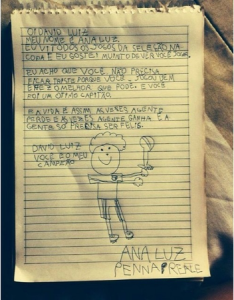 OI DAVID LUIZ
MEU NOME É ANA LUZ
EU VI TODOS OS JOGOS DA SELEÇÃO NA
COPA E EU GOSTEI MUITO DE VER VOCE JOGAR
EU ACHO QUE VOCE NÃO PRECISA
FICAR TRISTE PORQUE VOCE JOGOU BEM
E FEZ O MELHOR QUE PODE. E VOCE
FOI UM ÓTIMO CAPITÃO
A VIDA É ASSIM AS VEZES AGENTE
PERDE E AS VEZES AGENTE GANHA E A
GENTE SO PRECISA SER FELIS.
DAVID LUIZ
VOCE É O MEU
CAMPEÃO
ANA LUZ